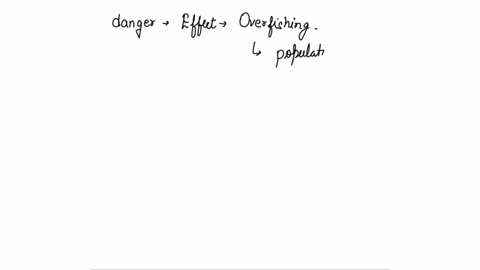 danger → Effect → Overfishing.
↳ populati